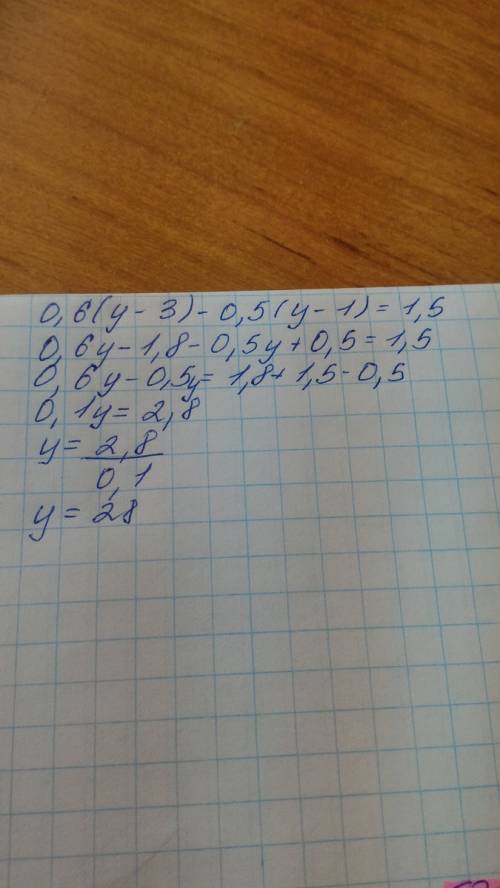 0,6(y-3)-0,5(y-1)=1,5
0,6y-1,8-0,5y+0,5=1,5
0,6y-0,5y=1,8+1,5-0,5
0,1y=2,8
y=2,8
0,1
y=28